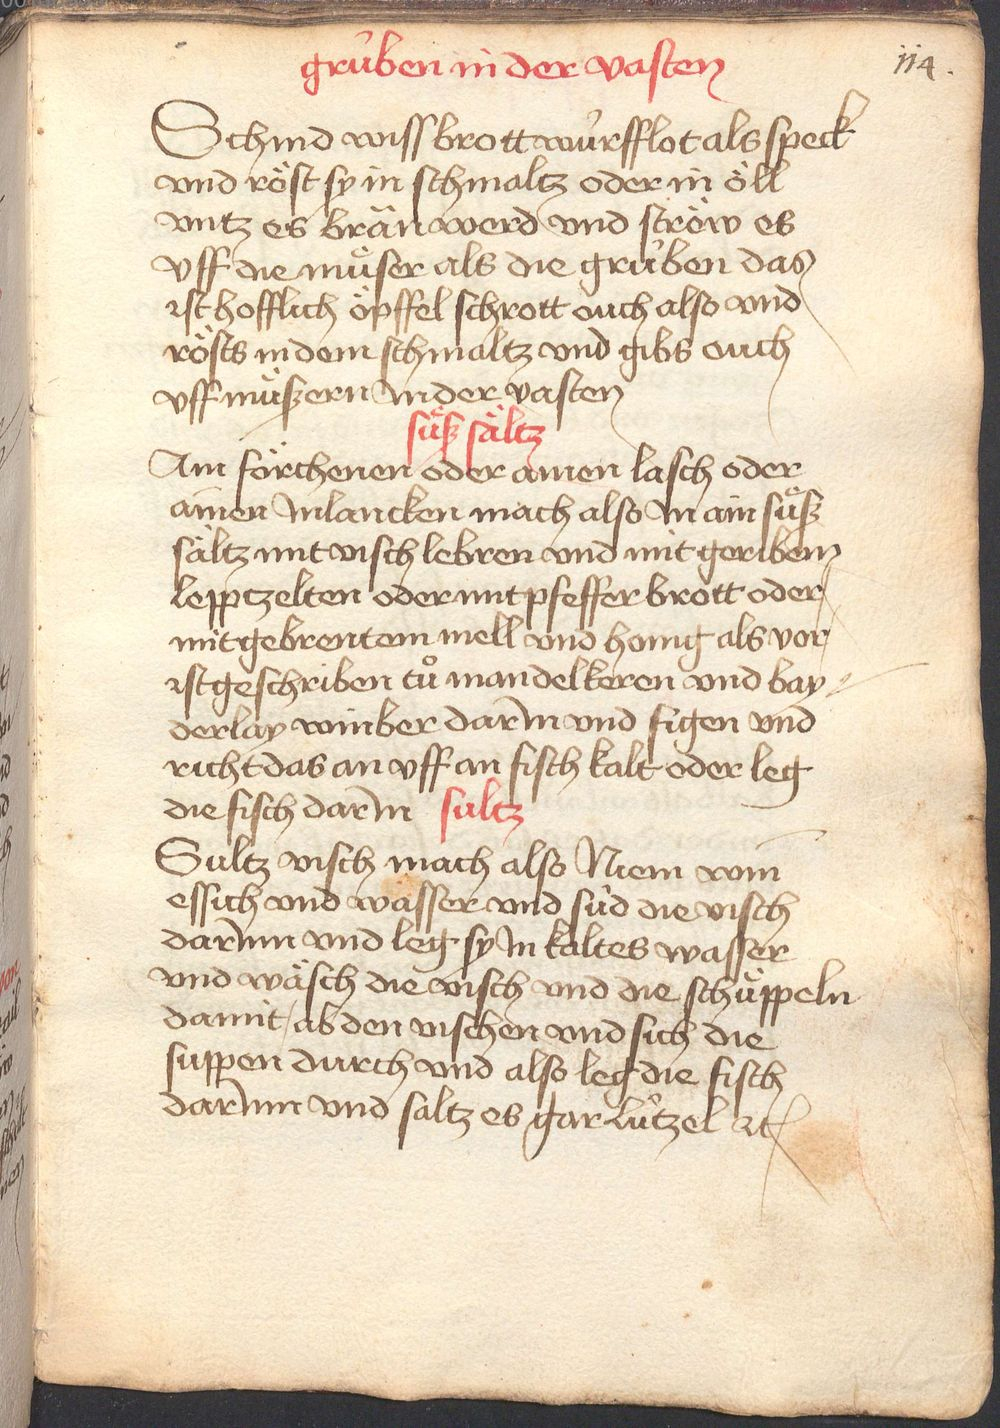 grúben in der vasten
114.
Schnid wiss brott wúrfflot als speck
vnd röst sy in schmaltz oder in öll
vntz es brän werd vnd ströw es
vff die müser als die grúben das
ist hofflich öpffel schrott ouch also vnd
rösts in dem schmaltz vnd gibs ouch
vff müßern In der vasten
süß sältz
Am förchenen oder ainen lasch oder
ainen Inlancken mach also In ain süß
sältz mit visch lebren vnd mit geribem
leppczelten oder mit pfeffer brott oder
mit gebrentem mell vnd honig als vor
ist geschriben tů mandelkeren vnd bay
derlay winber darIn vnd figen vnd
richt das an vff an fisch kalt oder leg
die fisch darIn sultz
Sultz visch mach also Niem win
essich vnd wasser vnd súd die visch
darInn vnd leg sy In kaltes wasser
vnd wäsch die visch vnd die schüppeln
damit ab den vischen vnd sich die
suppen durch vnd also leg die fisch
darInn vnd saltz es gar lútzel